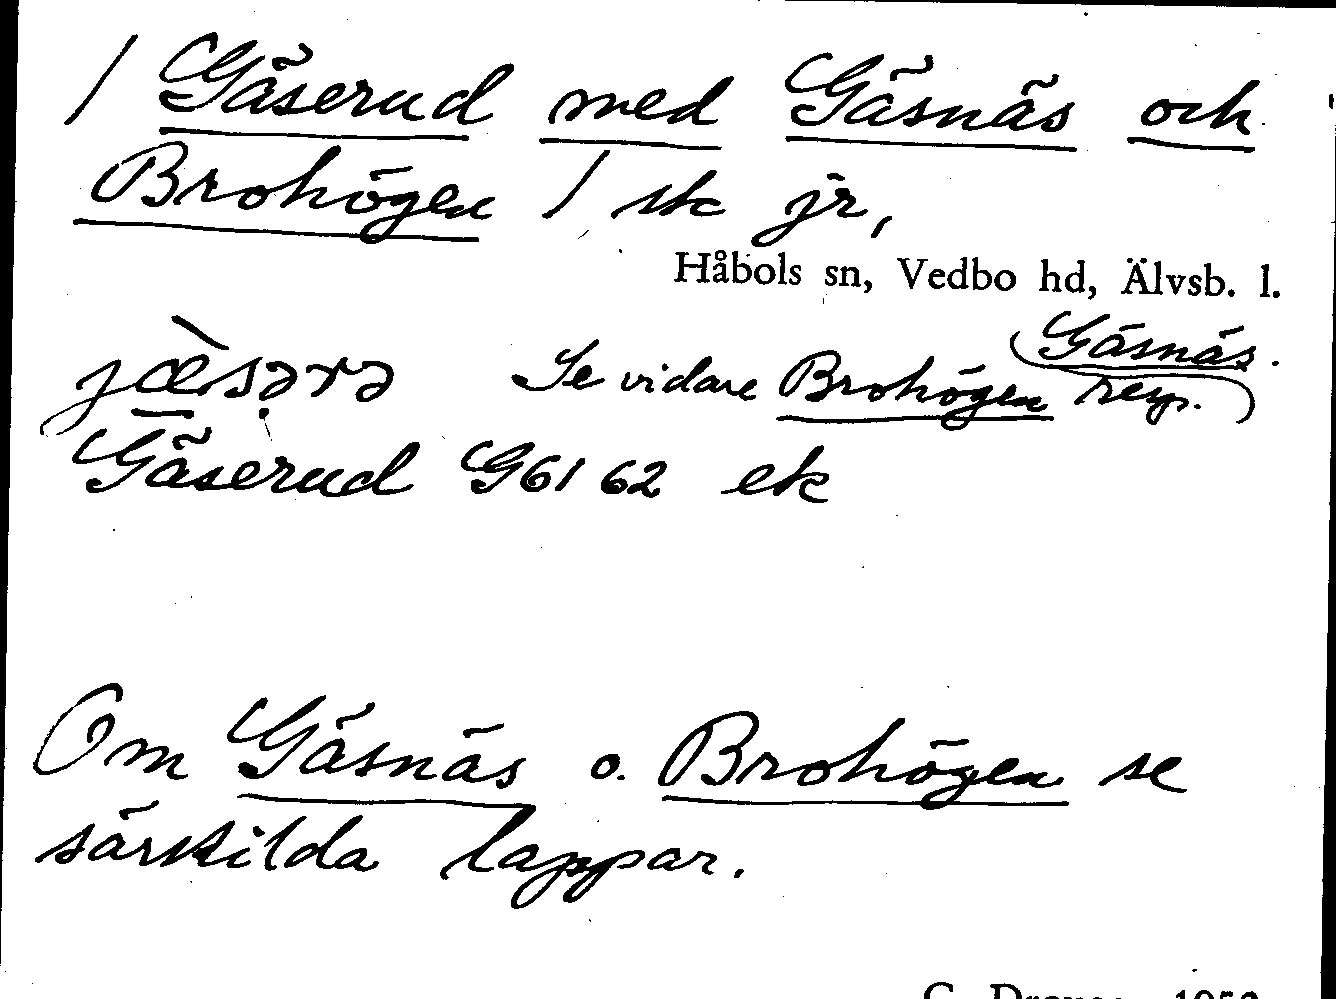 / Gäserud med Gäsnäs och
Brohögen / sk jr,
Håbols sn, Vedbo hd, Älvsb. l.
jæ̀sərə Se vidare Brohögen resp.
(Gäsnäs.)
Gäserud G6162 ek
Om Gäsnäs o. Brohögen se
särskilda lappar.